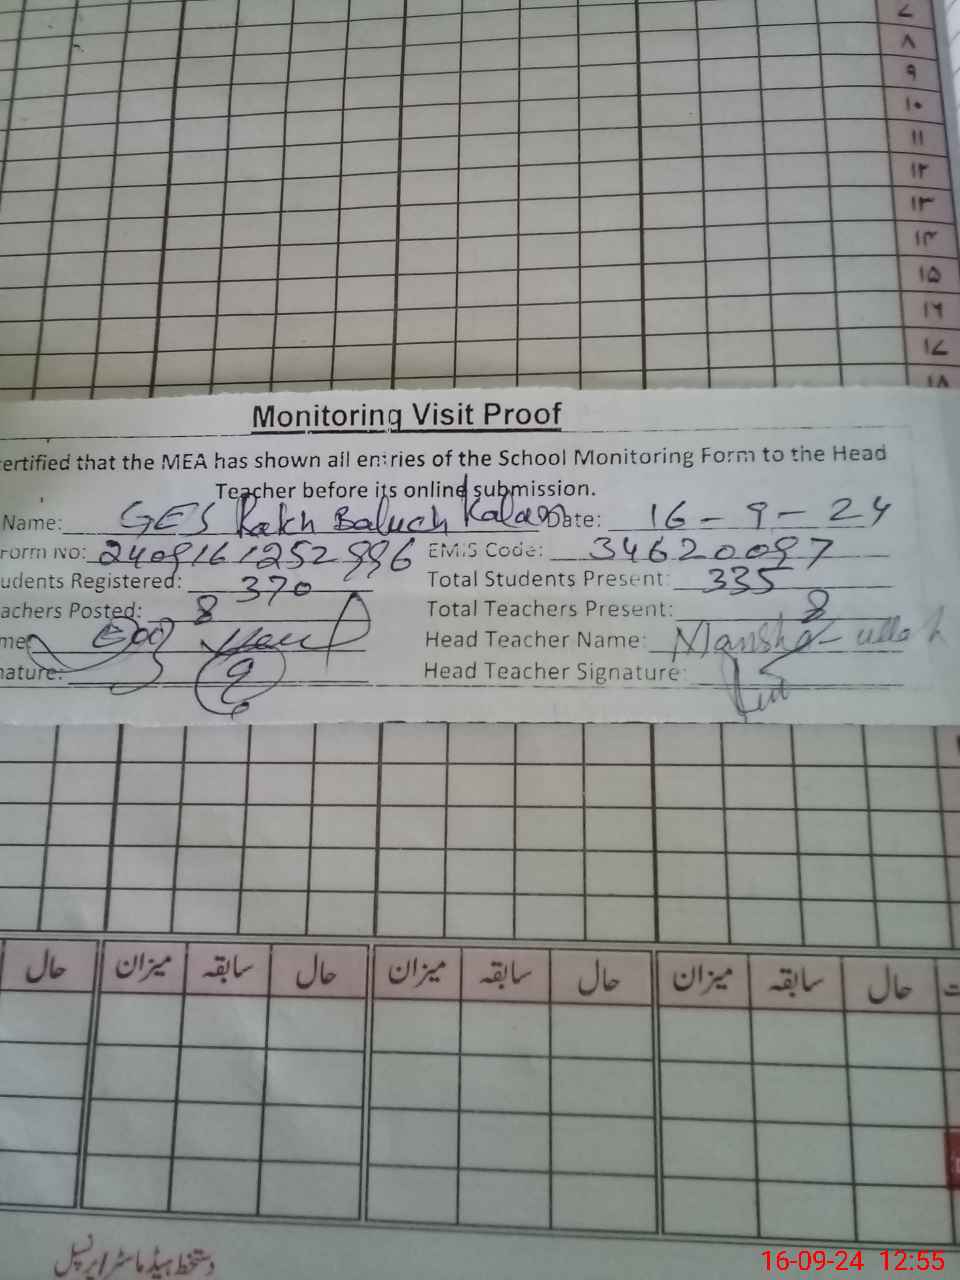 ٧
٨
٩
١٠
١١
١٢
١٣
١٤
١٥
١٦
١٧
١٨
Monitoring Visit Proof
ertified that the MEA has shown all entries of the School Monitoring Form to the Head
Teacher before its online submission.
Name: GES Rakh Baluch Kalan Date: 16-9-24
Form No: 2409161252996 EMIS Code: 34620097
udents Registered: 370 Total Students Present: 335
achers Posted: 8 Total Teachers Present: 8
me: Head Teacher Name: Mansha-ullah
nature: Head Teacher Signature:
حال میزان سابقہ حال میزان سابقہ حال میزان سابقہ حال
دستخط ہیڈ ماسٹر / پرنسپل
16-09-24 12:55